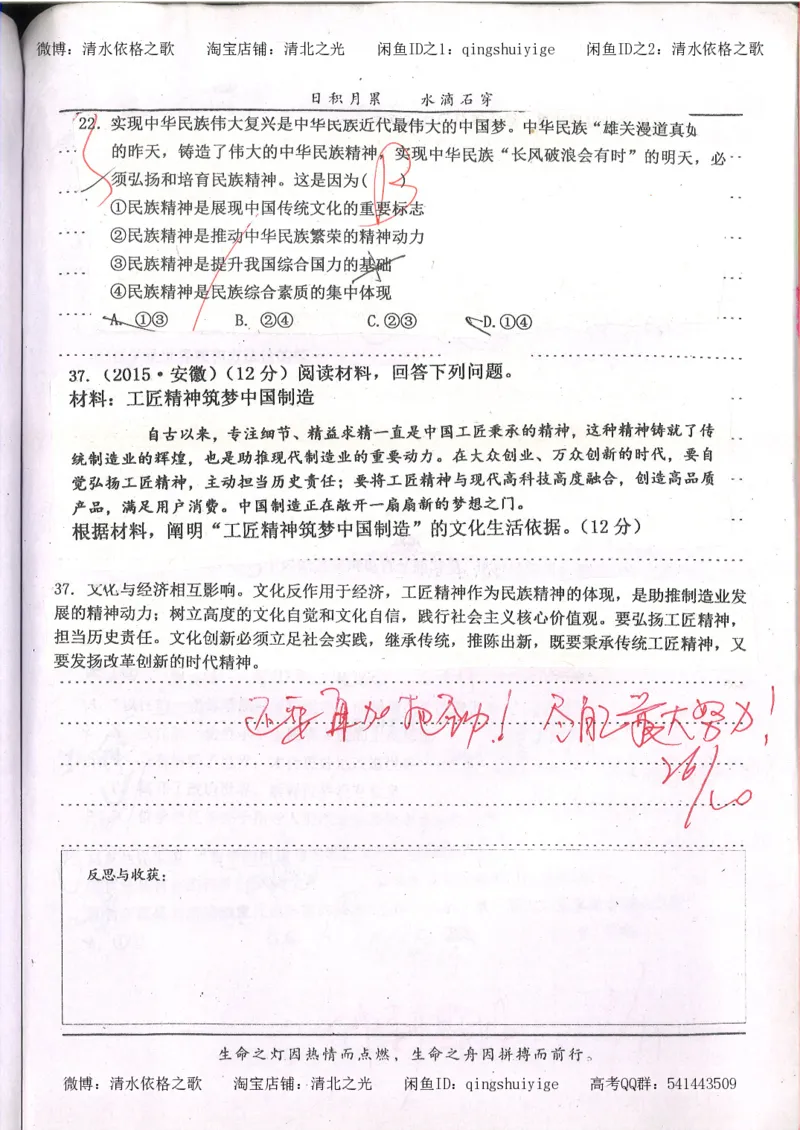 微博：清水依格之歌 淘宝店铺：清北之光 闲鱼ID之1：qingshuiyige 闲鱼ID之2：清水依格之歌
日积月累 水滴石穿
22. 实现中华民族伟大复兴是中华民族近代最伟大的中国梦。中华民族“雄关漫道真如
的昨天，铸造了伟大的中华民族精神，实现中华民族“长风破浪会有时”的明天，必
须弘扬和培育民族精神。这是因为( B )
①民族精神是展现中国传统文化的重要标志
②民族精神是推动中华民族繁荣的精神动力
③民族精神是提升我国综合国力的基础
④民族精神是民族综合素质的集中体现
A. ①③ B. ②④ C.②③ D.①④
37.（2015·安徽）（12分）阅读材料，回答下列问题。
材料：工匠精神筑梦中国制造
自古以来，专注细节、精益求精一直是中国工匠秉承的精神，这种精神铸就了传
统制造业的辉煌，也是助推现代制造业的重要动力。在大众创业、万众创新的时代，要自
觉弘扬工匠精神，主动担当历史责任；要将工匠精神与现代高科技高度融合，创造高品质
产品，满足用户消费。中国制造正在敞开一扇扇新的梦想之门。
根据材料，阐明“工匠精神筑梦中国制造”的文化生活依据。（12分）
37. 文化与经济相互影响。文化反作用于经济，工匠精神作为民族精神的体现，是助推制造业发
展的精神动力；树立高度的文化自觉和文化自信，践行社会主义核心价值观。要弘扬工匠精神，
担当历史责任。文化创新必须立足社会实践，继承传统，推陈出新，既要秉承传统工匠精神，又
要发扬改革创新的时代精神。
还要再加把劲！尽自己最大努力！
26/10
反思与收获：
生命之灯因热情而点燃，生命之舟因拼搏而前行。
微博：清水依格之歌 淘宝店铺：清北之光 闲鱼ID：qingshuiyige 高考QQ群：541443509